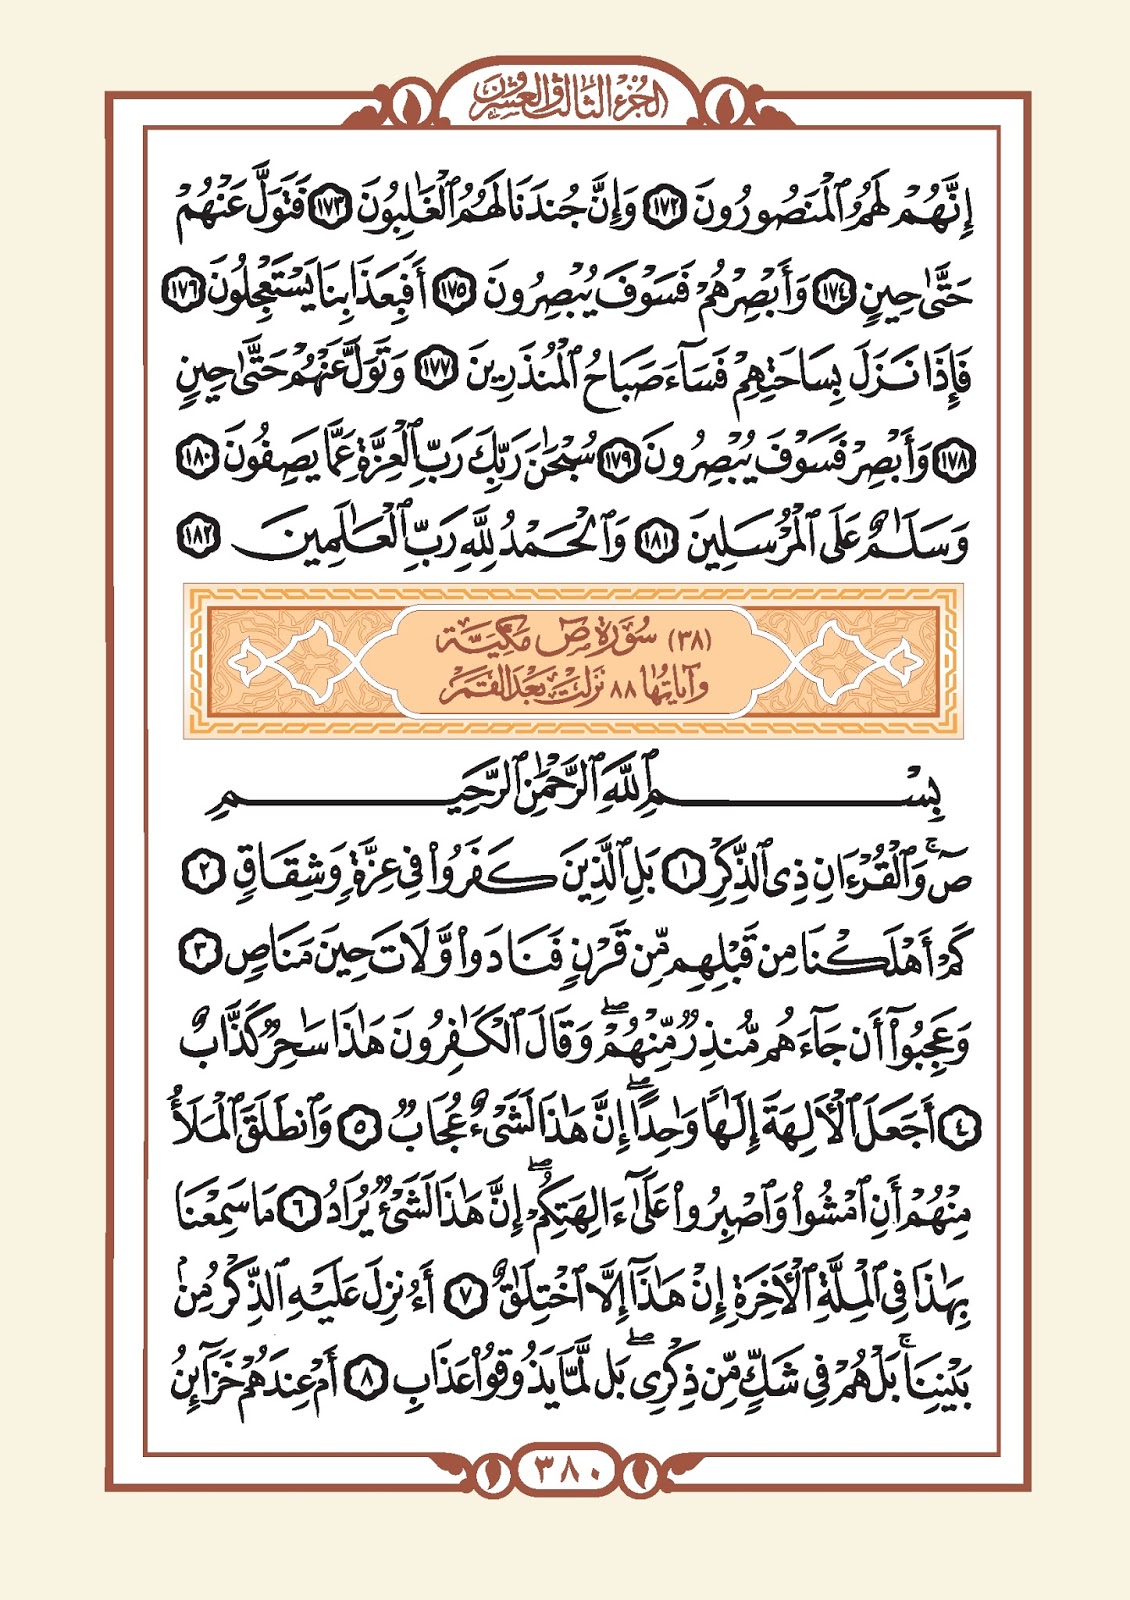 الجزء الثالث والعشرون
إِنَّهُمْ لَهُمُ ٱلْمَنصُورُونَ ١٧٢ وَإِنَّ جُندَنَا لَهُمُ ٱلْغَٰلِبُونَ ١٧٣ فَتَوَلَّ عَنْهُمْ
حَتَّىٰ حِينٍ ١٧٤ وَأَبْصِرْهُمْ فَسَوْفَ يُبْصِرُونَ ١٧٥ أَفَبِعَذَابِنَا يَسْتَعْجِلُونَ ١٧٦
فَإِذَا نَزَلَ بِسَاحَتِهِمْ فَسَآءَ صَبَاحُ ٱلْمُنذَرِينَ ١٧٧ وَتَوَلَّ عَنْهُمْ حَتَّىٰ حِينٍ
١٧٨ وَأَبْصِرْ فَسَوْفَ يُبْصِرُونَ ١٧٩ سُبْحَٰنَ رَبِّكَ رَبِّ ٱلْعِزَّةِ عَمَّا يَصِفُونَ ١٨٠
وَسَلَٰمٌ عَلَى ٱلْمُرْسَلِينَ ١٨١ وَٱلْحَمْدُ لِلَّهِ رَبِّ ٱلْعَٰلَمِينَ ١٨٢
(٣٨) سُوْرَة صٓ مَكِّيَّة
وآياتُها ٨٨ نَزَلَتْ بَعْدَ القَمَر
بِسْمِ ٱللَّهِ ٱلرَّحْمَٰنِ ٱلرَّحِيمِ
صٓۚ وَٱلْقُرْءَانِ ذِى ٱلذِّكْرِ ١ بَلِ ٱلَّذِينَ كَفَرُوا۟ فِى عِزَّةٍ وَشِقَاقٍ ٢
كَمْ أَهْلَكْنَا مِن قَبْلِهِم مِّن قَرْنٍ فَنَادَوا۟ وَّلَاتَ حِينَ مَنَاصٍ ٣
وَعَجِبُوٓا۟ أَن جَآءَهُم مُّنذِرٌ مِّنْهُمْۖ وَقَالَ ٱلْكَٰفِرُونَ هَٰذَا سَٰحِرٌ كَذَّابٌ
٤ أَجَعَلَ ٱلْأَلِهَةَ إِلَٰهًا وَٰحِدًاۖ إِنَّ هَٰذَا لَشَىْءٌ عُجَابٌ ٥ وَٱنطَلَقَ ٱلْمَلَأُ
مِنْهُمْ أَنِ ٱمْشُوا۟ وَٱصْبِرُوا۟ عَلَىٰٓ ءَالِهَتِكُمْۖ إِنَّ هَٰذَا لَشَىْءٌ يُرَادُ ٦ مَا سَمِعْنَا
بِهَٰذَا فِى ٱلْمِلَّةِ ٱلْأَخِرَةِ إِنْ هَٰذَآ إِلَّا ٱخْتِلَٰقٌ ٧ أَءُنزِلَ عَلَيْهِ ٱلذِّكْرُ مِنۢ
بَيْنِنَاۚ بَلْ هُمْ فِى شَكٍّ مِّن ذِكْرِىۖ بَل لَّمَّا يَذُوقُوا۟ عَذَابِ ٨ أَمْ عِندَهُمْ خَزَآئِنُ
٣٨٠